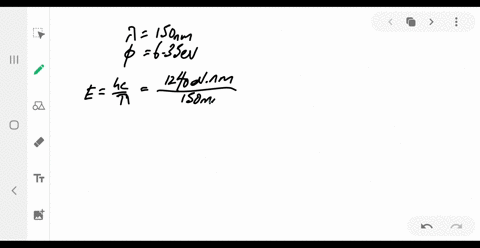 λ = 150nm
φ = 6.35eV
E = hc/λ = 1240eV.nm/150nm
Tt